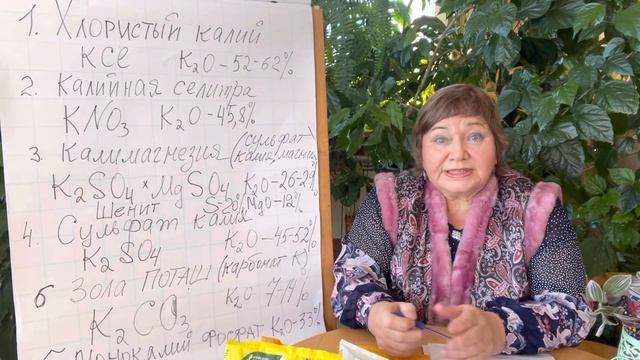 1. Хлористый калий
KCl K₂O-52-62%
2. Калийная селитра
KNO₃ K₂O-45,8%
3. Калимагнезия (сульфат калия! магния
K₂SO₄ × MgSO₄ K₂O-26-29%
Шенит MgO-12%
4. Сульфат калия
K₂SO₄ K₂O-45-52%
6 Зола ПОТАШ (карбонат К)
K₂CO₃ K₂O 7-14%
монокалий фосфат K₂O-33%